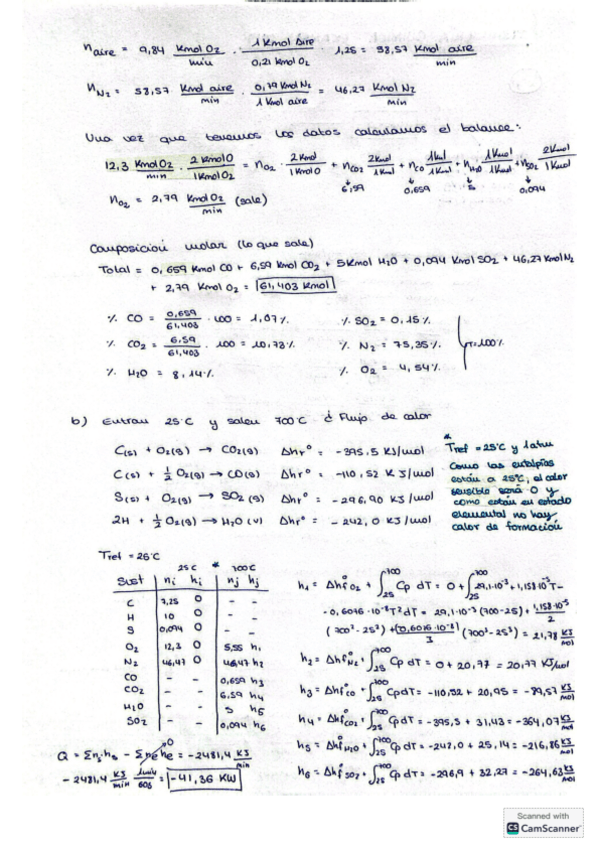 n aire = 9,84 Kmol O2/min · 1 Kmol aire/0,21 Kmol O2 · 1,25 = 58,57 Kmol aire/min
n N2 = 58,57 Kmol aire/min · 0,79 Kmol N2/1 Kmol aire = 46,27 Kmol N2/min
Una vez que tenemos los datos calculamos el balance:
12,3 Kmol O2/min · 2 Kmol O/1 Kmol O2 = nO2 · 2 Kmol/1 Kmol O + nCO2 2 Kmol/1 Kmol + nCO 1 Kmol/1 Kmol + nH2O 1 Kmol/1 Kmol + nSO2 2 Kmol/1 Kmol
↓ 6,59 ↓ 0,659 ↓ 5 ↓ 0,094
nO2 = 2,79 Kmol O2/min (sale)
Composición molar (lo que sale)
Total = 0,659 Kmol CO + 6,59 Kmol CO2 + 5 Kmol H2O + 0,094 Kmol SO2 + 46,27 Kmol N2
+ 2,79 Kmol O2 = 61,403 Kmol
% CO = 0,659/61,403 · 100 = 1,07% % SO2 = 0,15%
% CO2 = 6,59/61,403 · 100 = 10,73% % N2 = 75,35% 100%
% H2O = 8,14% % O2 = 4,54%
b) Entran 25°C y salen 700°C ¿ Flujo de calor
C(s) + O2(g) → CO2(g) Δhr° = -395,5 KJ/mol
C(s) + 1/2 O2(g) → CO(g) Δhr° = -110,52 KJ/mol
S(s) + O2(g) → SO2(g) Δhr° = -296,90 KJ/mol
2H + 1/2 O2(g) → H2O(v) Δhr° = -242,0 KJ/mol
*
Tref = 25°C y 1 atm
Como las entalpías
están a 25°C, el calor
sensible será 0 y
como están en su estado
elemental no hay
calor de formación
Tref = 25°C
25C * 700C
Sust ni hi nj hj
C 7,25 0 - -
H 10 0 - -
S 0,094 0 - -
O2 12,3 0 5,55 h1
N2 46,47 0 46,47 h2
CO - - 0,659 h3
CO2 - - 6,59 h4
H2O - - 5 h5
SO2 - - 0,094 h6
h1 = Δhf°O2 + ∫25 700 Cp dT = 0 + ∫25 700 29,1·10-3 + 1,158·10-5 T -
- 0,6076·10-8 T2 dT = 29,1·10-3 (700-25) + 1,158·10-5/2
(700²-25²) + (-0,6076·10-8)/3 (700³-25³) = 21,78 KJ/mol
h2 = Δhf°N2 + ∫25 700 Cp dT = 0 + 20,77 = 20,77 KJ/mol
h3 = Δhf°CO + ∫25 700 Cp dT = -110,52 + 20,95 = -89,57 KJ/mol
h4 = Δhf°CO2 + ∫25 700 Cp dT = -395,5 + 31,43 = -364,07 KJ/mol
h5 = Δhf°H2O + ∫25 700 Cp dT = -242,0 + 25,14 = -216,86 KJ/mol
h6 = Δhf°SO2 + ∫25 700 Cp dT = -296,9 + 32,27 = -264,63 KJ/mol
Q = Σns hs - Σne he →0 = -2481,4 KJ/min
-2481,4 KJ/min · 1 min/60s = -41,36 KW
Scanned with
CS CamScanner